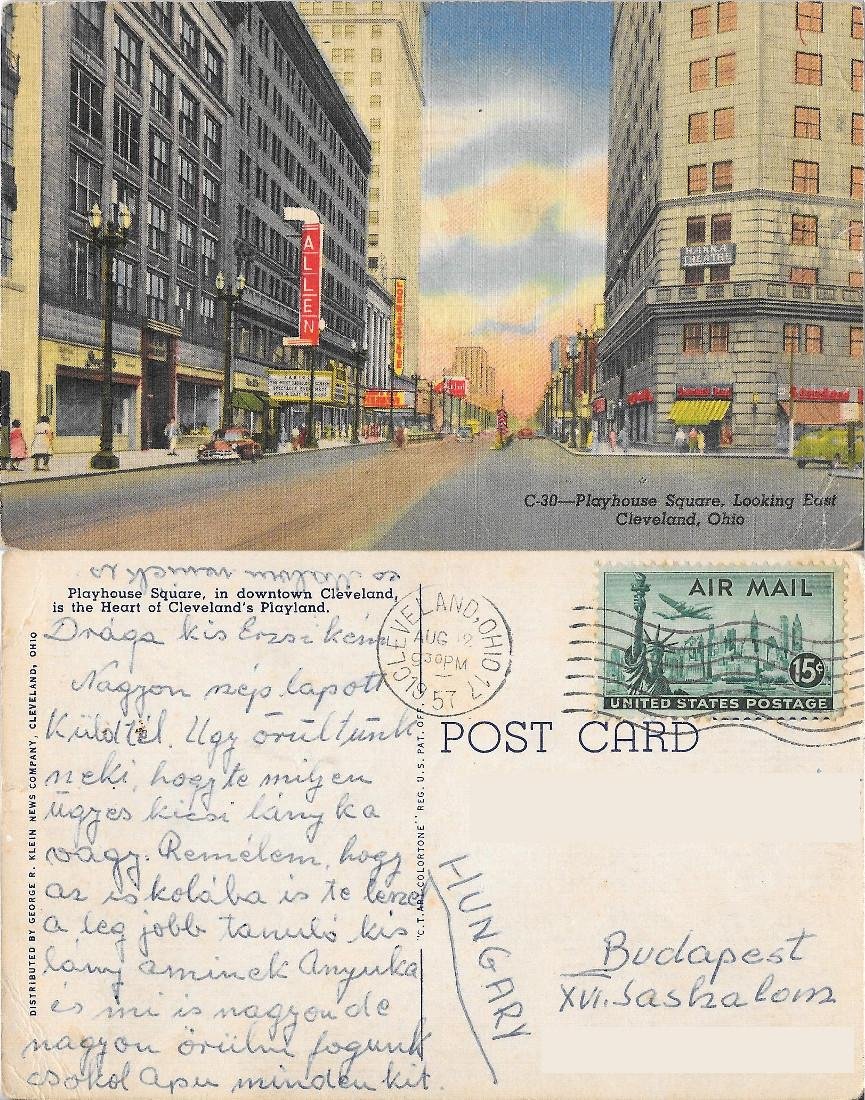 ALLEN
HANNA
THEATRE
C-30—Playhouse Square, Looking East
Cleveland, Ohio
Playhouse Square, in downtown Cleveland,
is the Heart of Cleveland's Playland.
Drága kis Erzsikém
Nagyon szép lapott
Küldtél. Ugy örültünk
neki, hogy te milyen
ügyes kicsi lányka
vagy. Remélem, hogy
az iskolába is te leszel
a leg jobb tanuló kis
lány aminek Anyuka
és mi is nagyon de
nagyon örülni fogunk
csokol Apu mindenkit.
DISTRIBUTED BY GEORGE R. KLEIN NEWS COMPANY, CLEVELAND, OHIO
"C.T. ART-COLORTONE" REG. U.S. PAT. OFF.
CLEVELAND, OHIO 17
AUG 12
930PM
1957
AIR MAIL
15¢
UNITED STATES POSTAGE
POST CARD
HUNGARY
Budapest
XVI. Sashalom